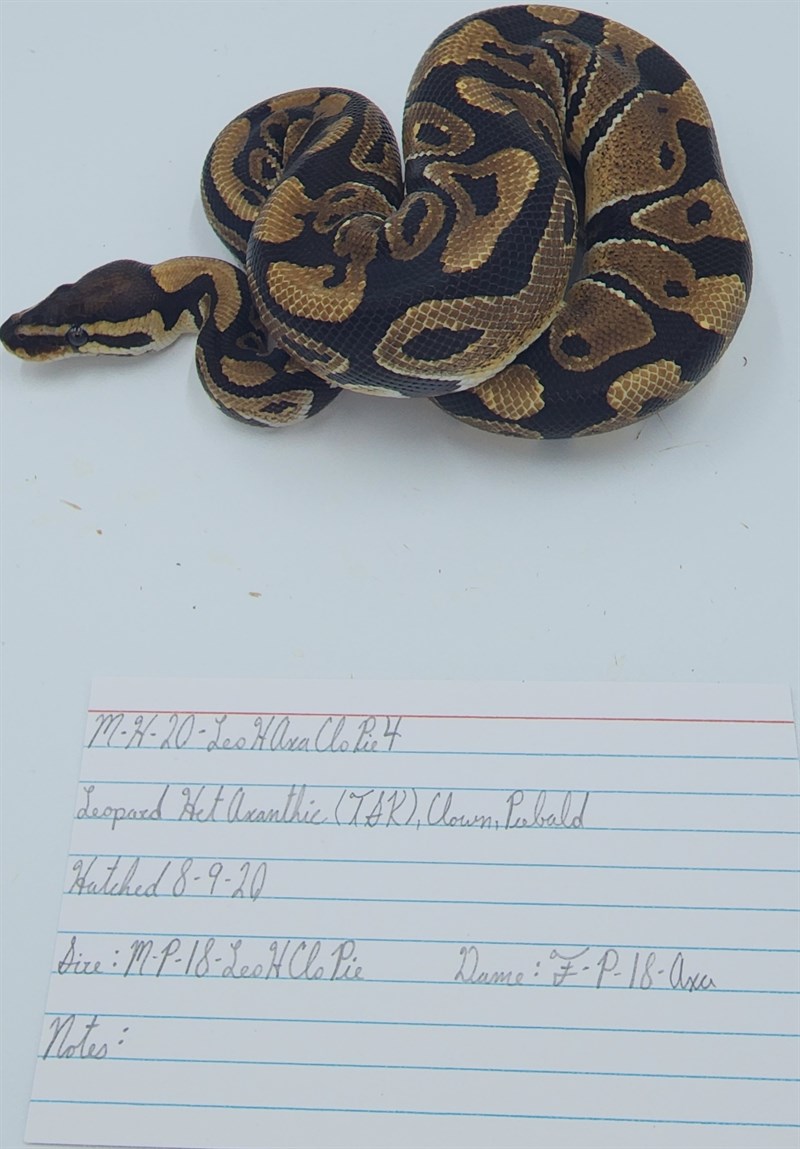 M-H-20-Leo H Axa Clo Pie 4
Leopard Het Axanthic (TSK), Clown, Piebald
Hatched 8-9-20
Sire: M-P-18-Leo H Clo Pie Dame: F-P-18-Axa
Notes: